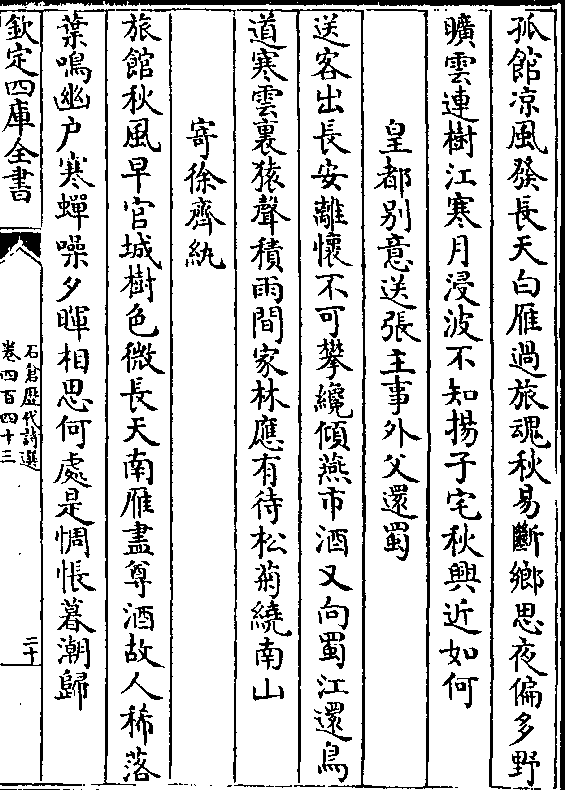 孤館凉風發長天白雁過旅魂秋易斷鄉思夜偏多野
曠雲連樹江寒月浸波不知揚子宅秋興近如何
皇都別意送張主事外父還蜀
送客出長安離懷不可攀纔傾燕市酒又向蜀江還鳥
道寒雲裏猿聲積雨間家林應有待松菊繞南山
寄徐齊紈
旅館秋風早官城樹色微長天南雁盡尊酒故人稀落
葉鳴幽户寒蟬噪夕暉相思何處是惆悵暮潮歸
欽定四庫全書
石倉歷代詩選
卷四百四十三
二十